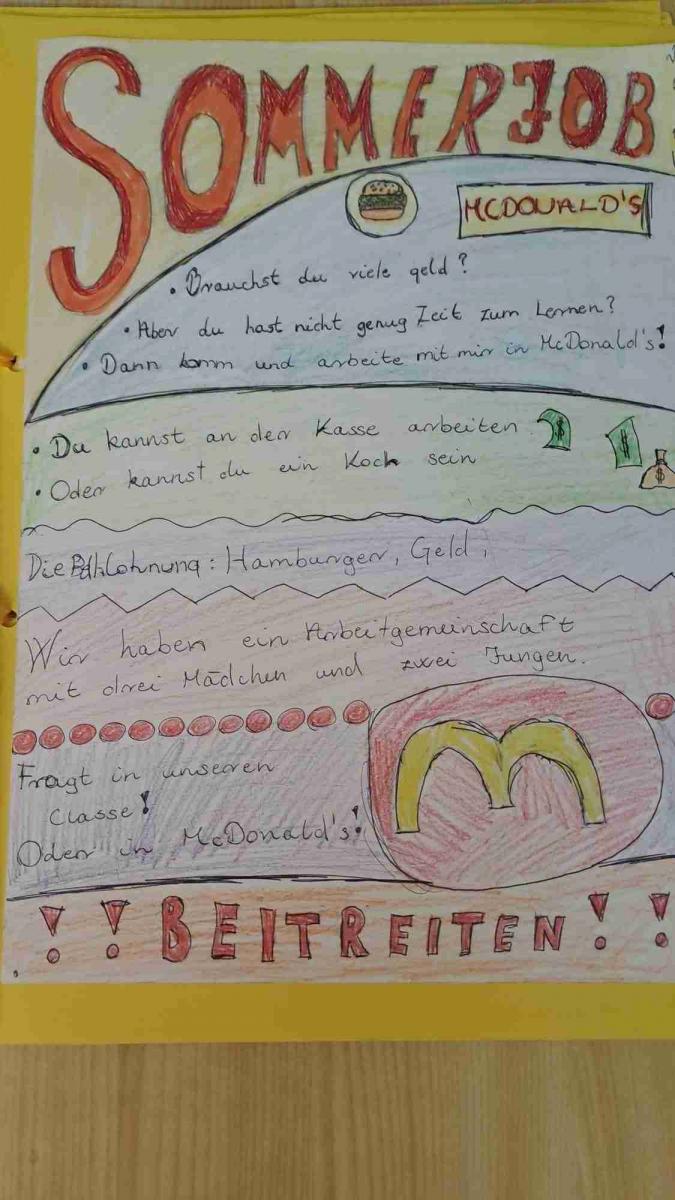 SOMMERJOB
MCDONALD'S
• Brauchst du viele geld?
• Aber du hast nicht genug Zeit zum Lernen?
• Dann komm und arbeite mit mir in McDonald's!
• Du kannst an der Kasse arbeiten
• Oder kannst du ein Koch sein
Die Lohnung: Hamburger, Geld,
Wir haben ein Arbeitgemeinschaft
mit drei Mädchen und zwei Jungen.
Fragt in unseren
Classe!
Oder in McDonald's!
!! BEITREITEN!!